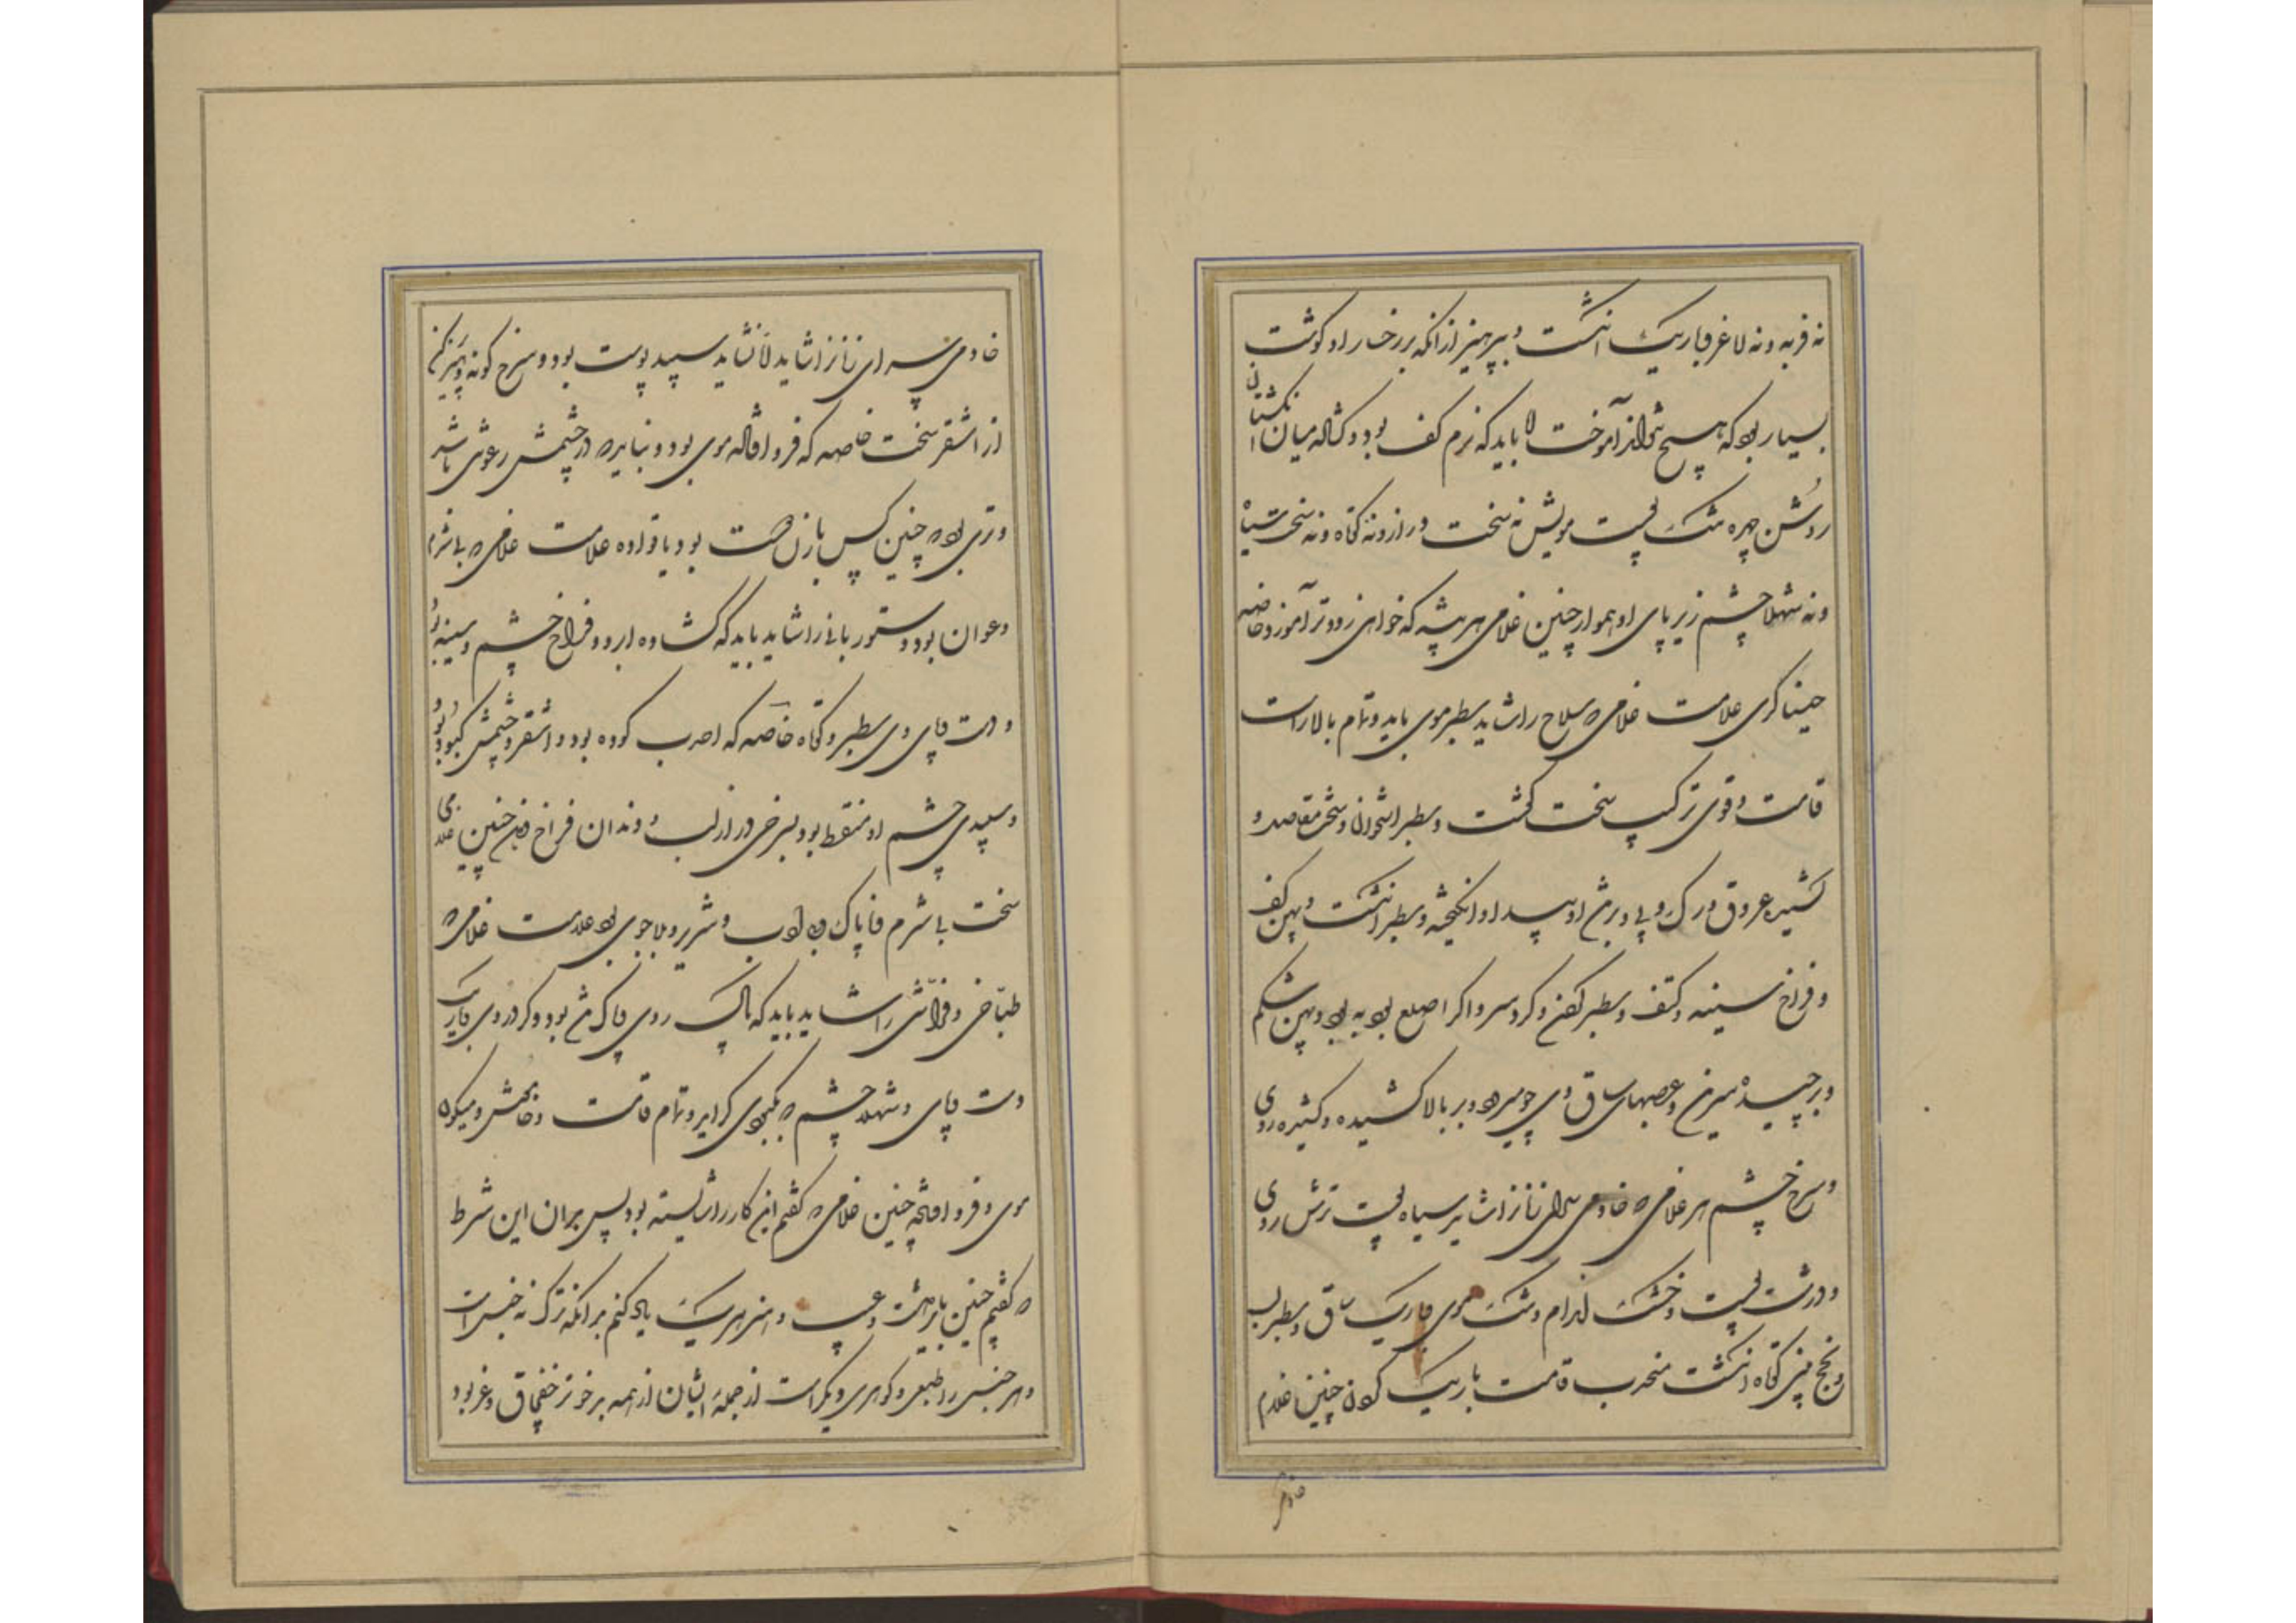 نه فربه و نه لاغر و باریک انگشت و بپرهیز از انکه بر رخسار او کوشت
بسیار بود که هیچ نتواند آموخت اما باید که نرم کف بود و کشاده میان انکشتان
روشن چهره تنک پوست مویش نه سخت دراز و نه کوتاه و نه سخت سیاه
و نه شهلا چشم زیر پای او هموار چنین غلامی هر پیشه که خواهی زودتر آموزد خاصه
حیناکری علامت غلامی که سلاح را شاید سطبر موی باید و تمام بالا راست
قامت و قوی ترکیب سخت کوشت و سطبر استخوان و سخت مفاصل و
کشیده عروق و رک و پی بر تن او پیدا و انکیخته و سطبر انکشت و پهن کف
و فراخ سینه و کتف و سطبر کردن و کرد سر و اکر اصلع بود به بود و پهن شکم
و برچیده سرین و عصبهای ساق وی چو میرود و بر بالا کشیده و کشیده روی
و سرخ چشم هر غلامی که خادمی سرای زنان را شاید سیاه پوست ترش روی
و درشت پوست و خشک اندام و تنک موی و باریک ساق و سطبر لب
و پخچ بینی کوتاه انکشت منحدب قامت باریک کردن چنین غلام
خادمی
خادمی سرای زنان را شاید اما نشاید سپید پوست بود و سرخ کونه و پرهیز کن
از اشقر سخت خاصه که فرو افتاده موی بود و نباید که در چشمش رعونتی باشد
و تری بود که چنین کس یا زن دوست بود یا قواده علامت غلامی که بی شرم
و عوان بود و ستوربانی را شاید باید که کشاده ابرو و فراخ چشم و سینه بود
و دست و پای وی سطبر و کوتاه خاصه که احدب کوده بود و اشقر و چشمش کبود بود
و سپیدی چشم او منقط بود بسرخی دراز لب و دندان فراخ دهن چنین غلامی
سخت بی شرم و ناپاک و بی ادب و شریر و بلاجوی بود علامت غلامی که
طباخی و فراشی را شاید باید که پاک روی و پاک تن بود و کرد روی و باریک
دست و پای و شهلا چشم که بکبودی کراید و تمام قامت و خاموش و میکون
موی و فرو افتاده چنین غلامی که کفتم این کار را شایسته بود پس بران این شرط
که کفتم چنین باید داشت و عیب و هنر هر یک یاد کنم بدانکه ترک نه جنس است
و هر جنسی را طبعی و کوهری دیکر است از جمله ایشان از همه بدخوتر خفچاق و غز بود